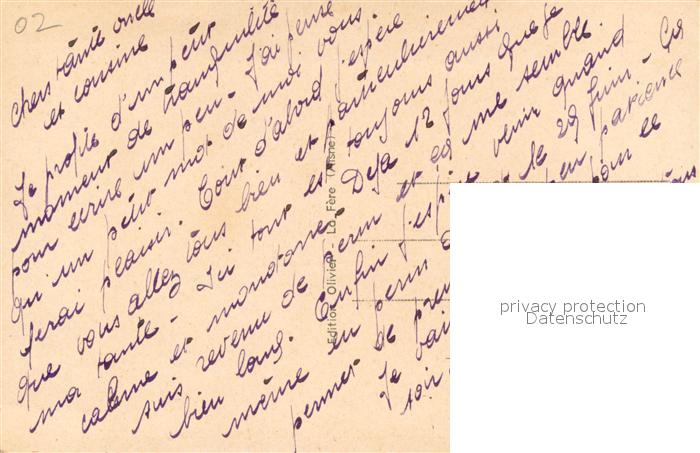 02
Chers tante oncle
et cousine
Je profite d'un petit
moment de tranquilité
pour ecrire un peu - J'ai pensé
qu'un petit mot de moi vous
ferai plaisir. Tout d'abord j'espère
que vous allez tous bien et particulierement
ma tante - Ici tout est toujours aussi
calme et monotone. Deja 12 jours que je
suis revenu de perm et ça me semble
bien long. Enfin j'espère venir quand
même en perm le 29 Juin - Ça
permet de pren en patience
Je vais
soir
Edition Olivier - La Fère (Aisne)
privacy protection
Datenschutz